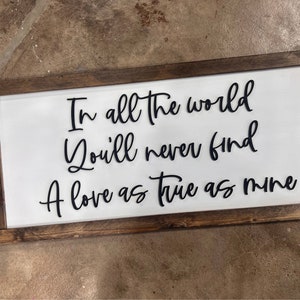 In all the world
You'll never find
A love as true as mine